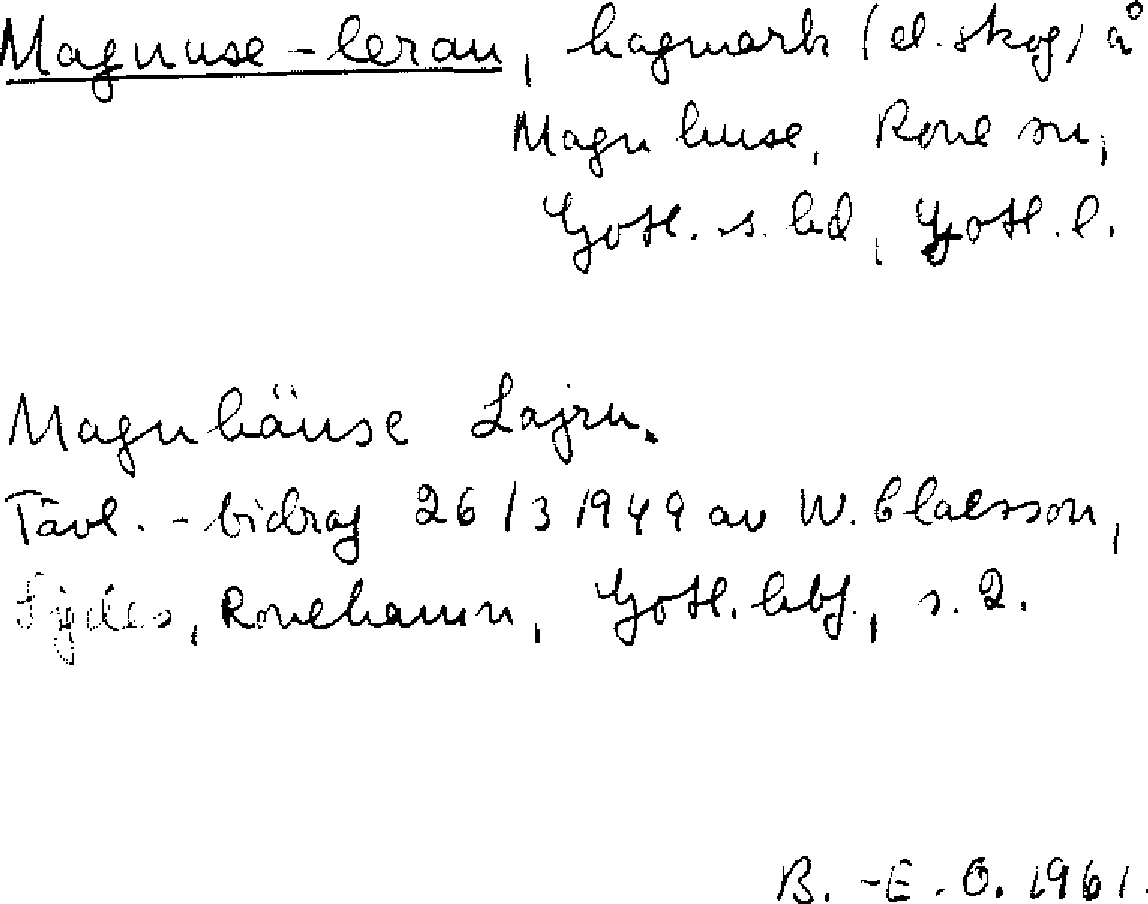 Magnuse-leran, hagmark (el. skog) å
Magnhuse, Rone sn,
Gotl. s. hd, Gotl. l.
Magnhäuse Lajrn.
Tävl.-bidrag 26/3 1949 av W. Claesson,
Fjides, Ronehamn, Gotl. hbf., s. 2.
B.-E. O. 1961.